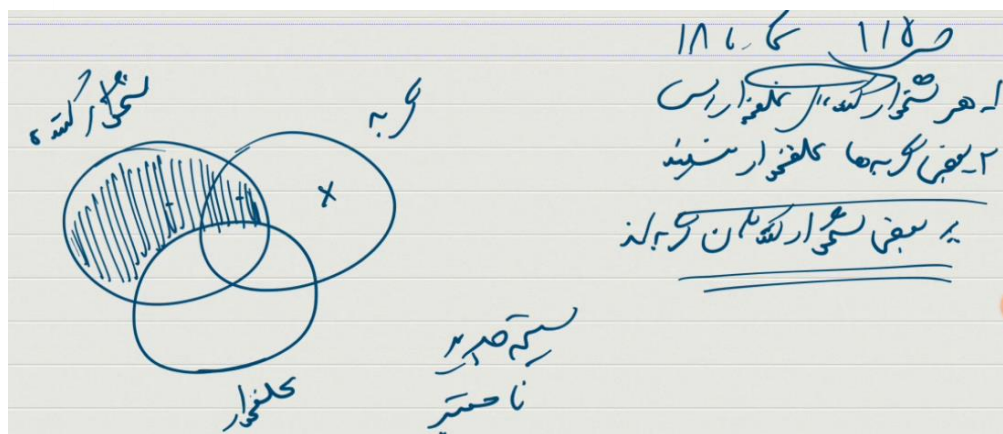 ص ۱۱۵
۱- هر نشخوارکننده‌ای علفخوار است
۲- بعضی گربه‌ها علفخوار نیستند
∴ بعضی نشخوارکنندگان گربه‌اند
نشخوارکننده
گربه
علفخوار
جدید
نامعتبر